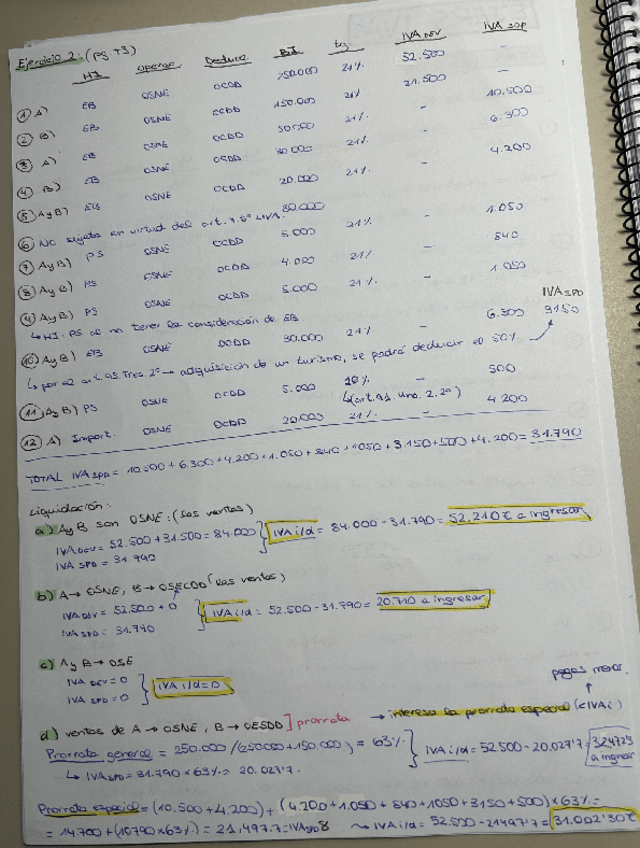 Ejercicio 2: (PS T3)
HI Operac Deduce BI tg IVA DEV IVA SOP
① A) EB OSNE OCDD 250.000 21% 52.500 –
② B) EB OSNE OCDD 150.000 21% 31.500 –
③ A) EB OSNE OCDD 50.000 21% – 10.500
④ B) EB OSNE OCDD 30.000 21% – 6.300
⑤ A y B) EB OSNE OCDD 20.000 21% – 4.200
⑥ No sujeta en virtud del art. 7.5º LIVA. 30.000
⑦ A y B) PS OSNE OCDD 5.000 21% – 1.050
⑧ A y B) PS OSNE OCDD 4.000 21% – 840
⑨ A y B) PS OSNE OCDD 5.000 21% – 1.050
↳ HI: PS al no tener la consideración de EB. IVA SPD
⑩ A y B) EB OSNE OCDD 30.000 21% – 6.300 3150
↳ por el art. 95. Tres. 2ª → adquisición de un turismo, se podrá deducir el 50%
⑪ A y B) PS OSNE OCDD 5.000 10% – 500
↳ (art. 91. Uno. 2. 2º)
⑫ A) Import. OSNE OCDD 20.000 21% – 4.200
TOTAL IVA SPD = 10.500 + 6.300 + 4.200 + 1.050 + 840 + 1050 + 3.150 + 500 + 4.200 = 31.790
Liquidación:
a) A y B son OSNE: (las ventas)
IVA DEV = 52.500 + 31.500 = 84.000 } IVA i/d = 84.000 - 31.790 = 52.210€ a ingresar
IVA SPD = 31.790
b) A → OSNE, B → OSECDD (las ventas)
IVA DEV = 52.500 + 0 } IVA i/d = 52.500 - 31.790 = 20.710 a ingresar
IVA SPD = 31.790
c) A y B → OSE
IVA DEV = 0 } IVA i/d = 0
IVA SPD = 0
pagas menos.
d) ventas de A → OSNE, B → OESDD ] prorrata → interesa la prorrata especial (< IVA i)
Prorrata general = 250.000 / (250.000 + 150.000) = 63% } IVA i/d = 52.500 - 20.027'7 = 32.472'3 a ingresar
↳ IVA SPD = 31.790 × 63% = 20.027'7.
Prorrata especial = (10.500 + 4.200) + (4.200 + 1.050 + 840 + 1050 + 3150 + 500) × 63% =
= 14.700 + (10790 × 63%) = 21.497'7 = IVA SPD 8 ~→ IVA i/d = 52.500 - 21497'7 = 31.002'30€